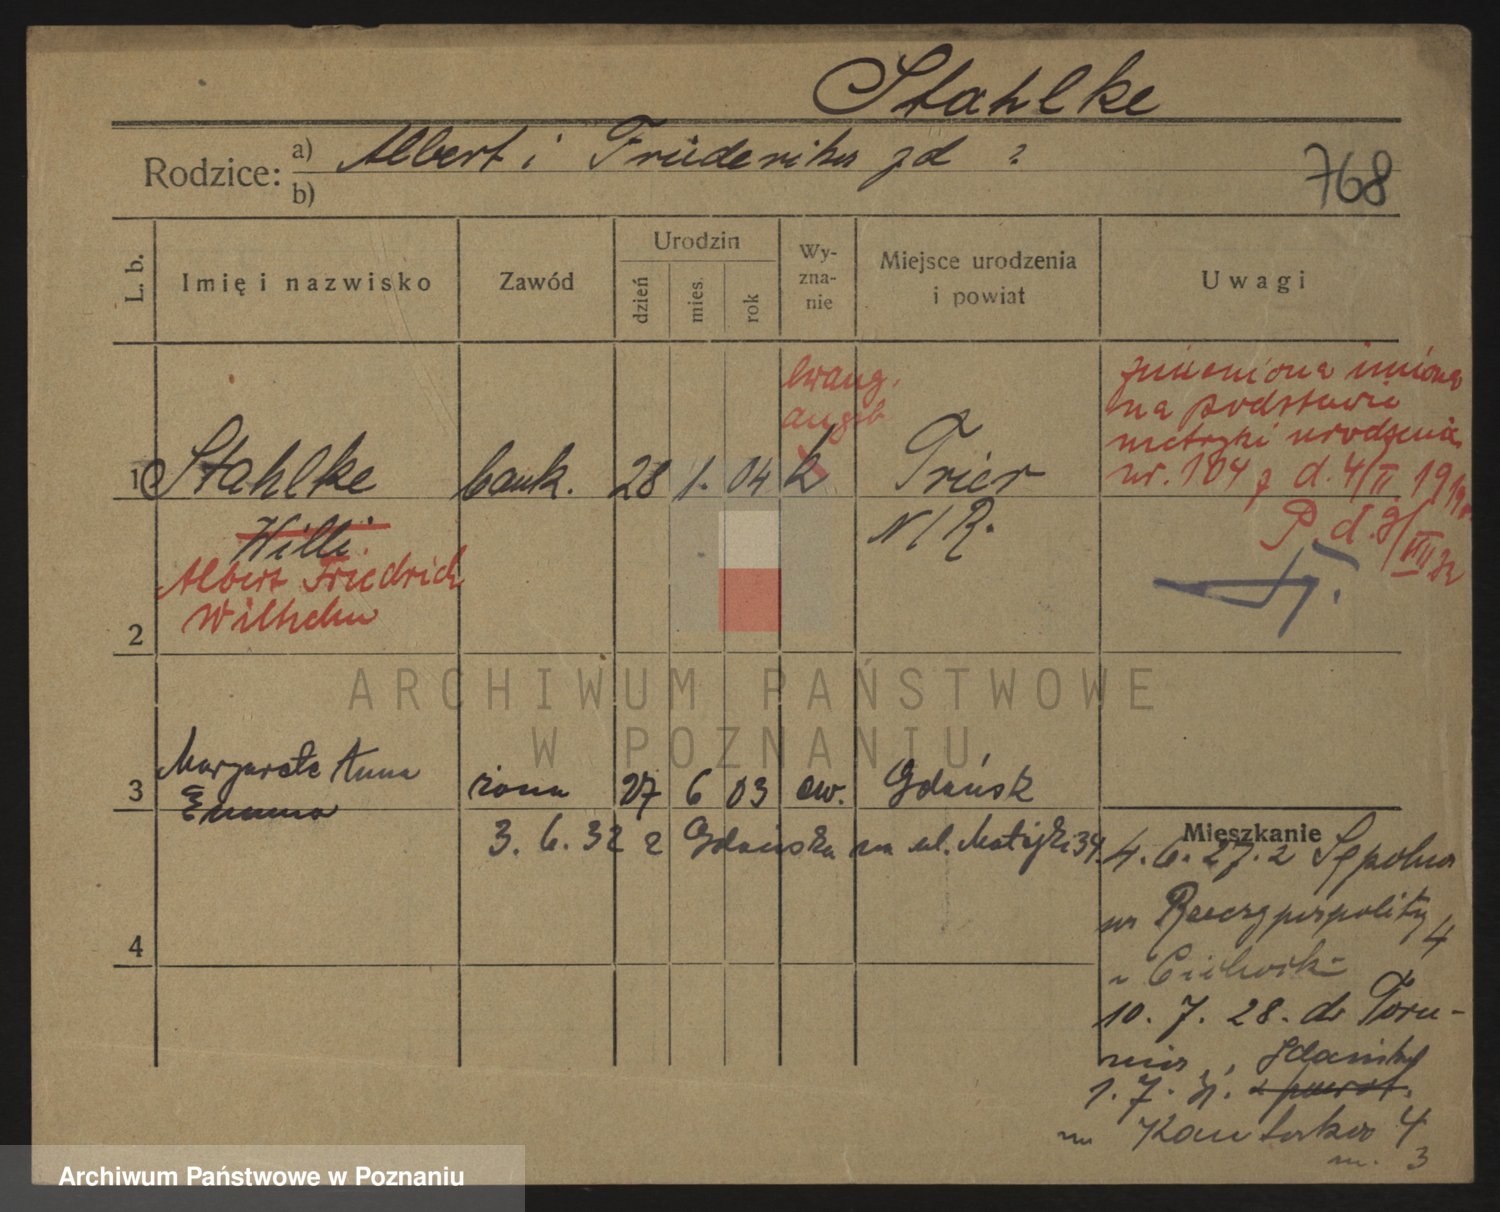 Stahlke
Rodzice: a) Albert i Früderika zd ?
b)
768
L. b.
Imię i nazwisko
Zawód
Urodzin
dzień
mies.
rok
Wy-
zna-
nie
Miejsce urodzenia
i powiat
Uwagi
ewang.
augsb
zmieniona imiona
na podstawie
metryki urodzenia
nr. 104 z d. 4/II 19
P. d. 9/VIII 32
1 Stahlke bank. 28 1. 04 k Trier
N/R.
Willi
Albert Friedrich
Wilhelm
2
ARCHIWUM PAŃSTWOWE
W POZNANIU
3 Margarete Anna żona 27 6 03 ew. Gdańsk
Emma
3. 6. 32 z Gdańska na ul. Matejki 34.
Mieszkanie
4. 6. 27. z Sępolna
Rzeczypospolitej 4
4
10. 7. 28. do Toru-
nia, Gdańska
1. 7. 31. z powrot.
na Kantaka 4
m. 3
Archiwum Państwowe w Poznaniu